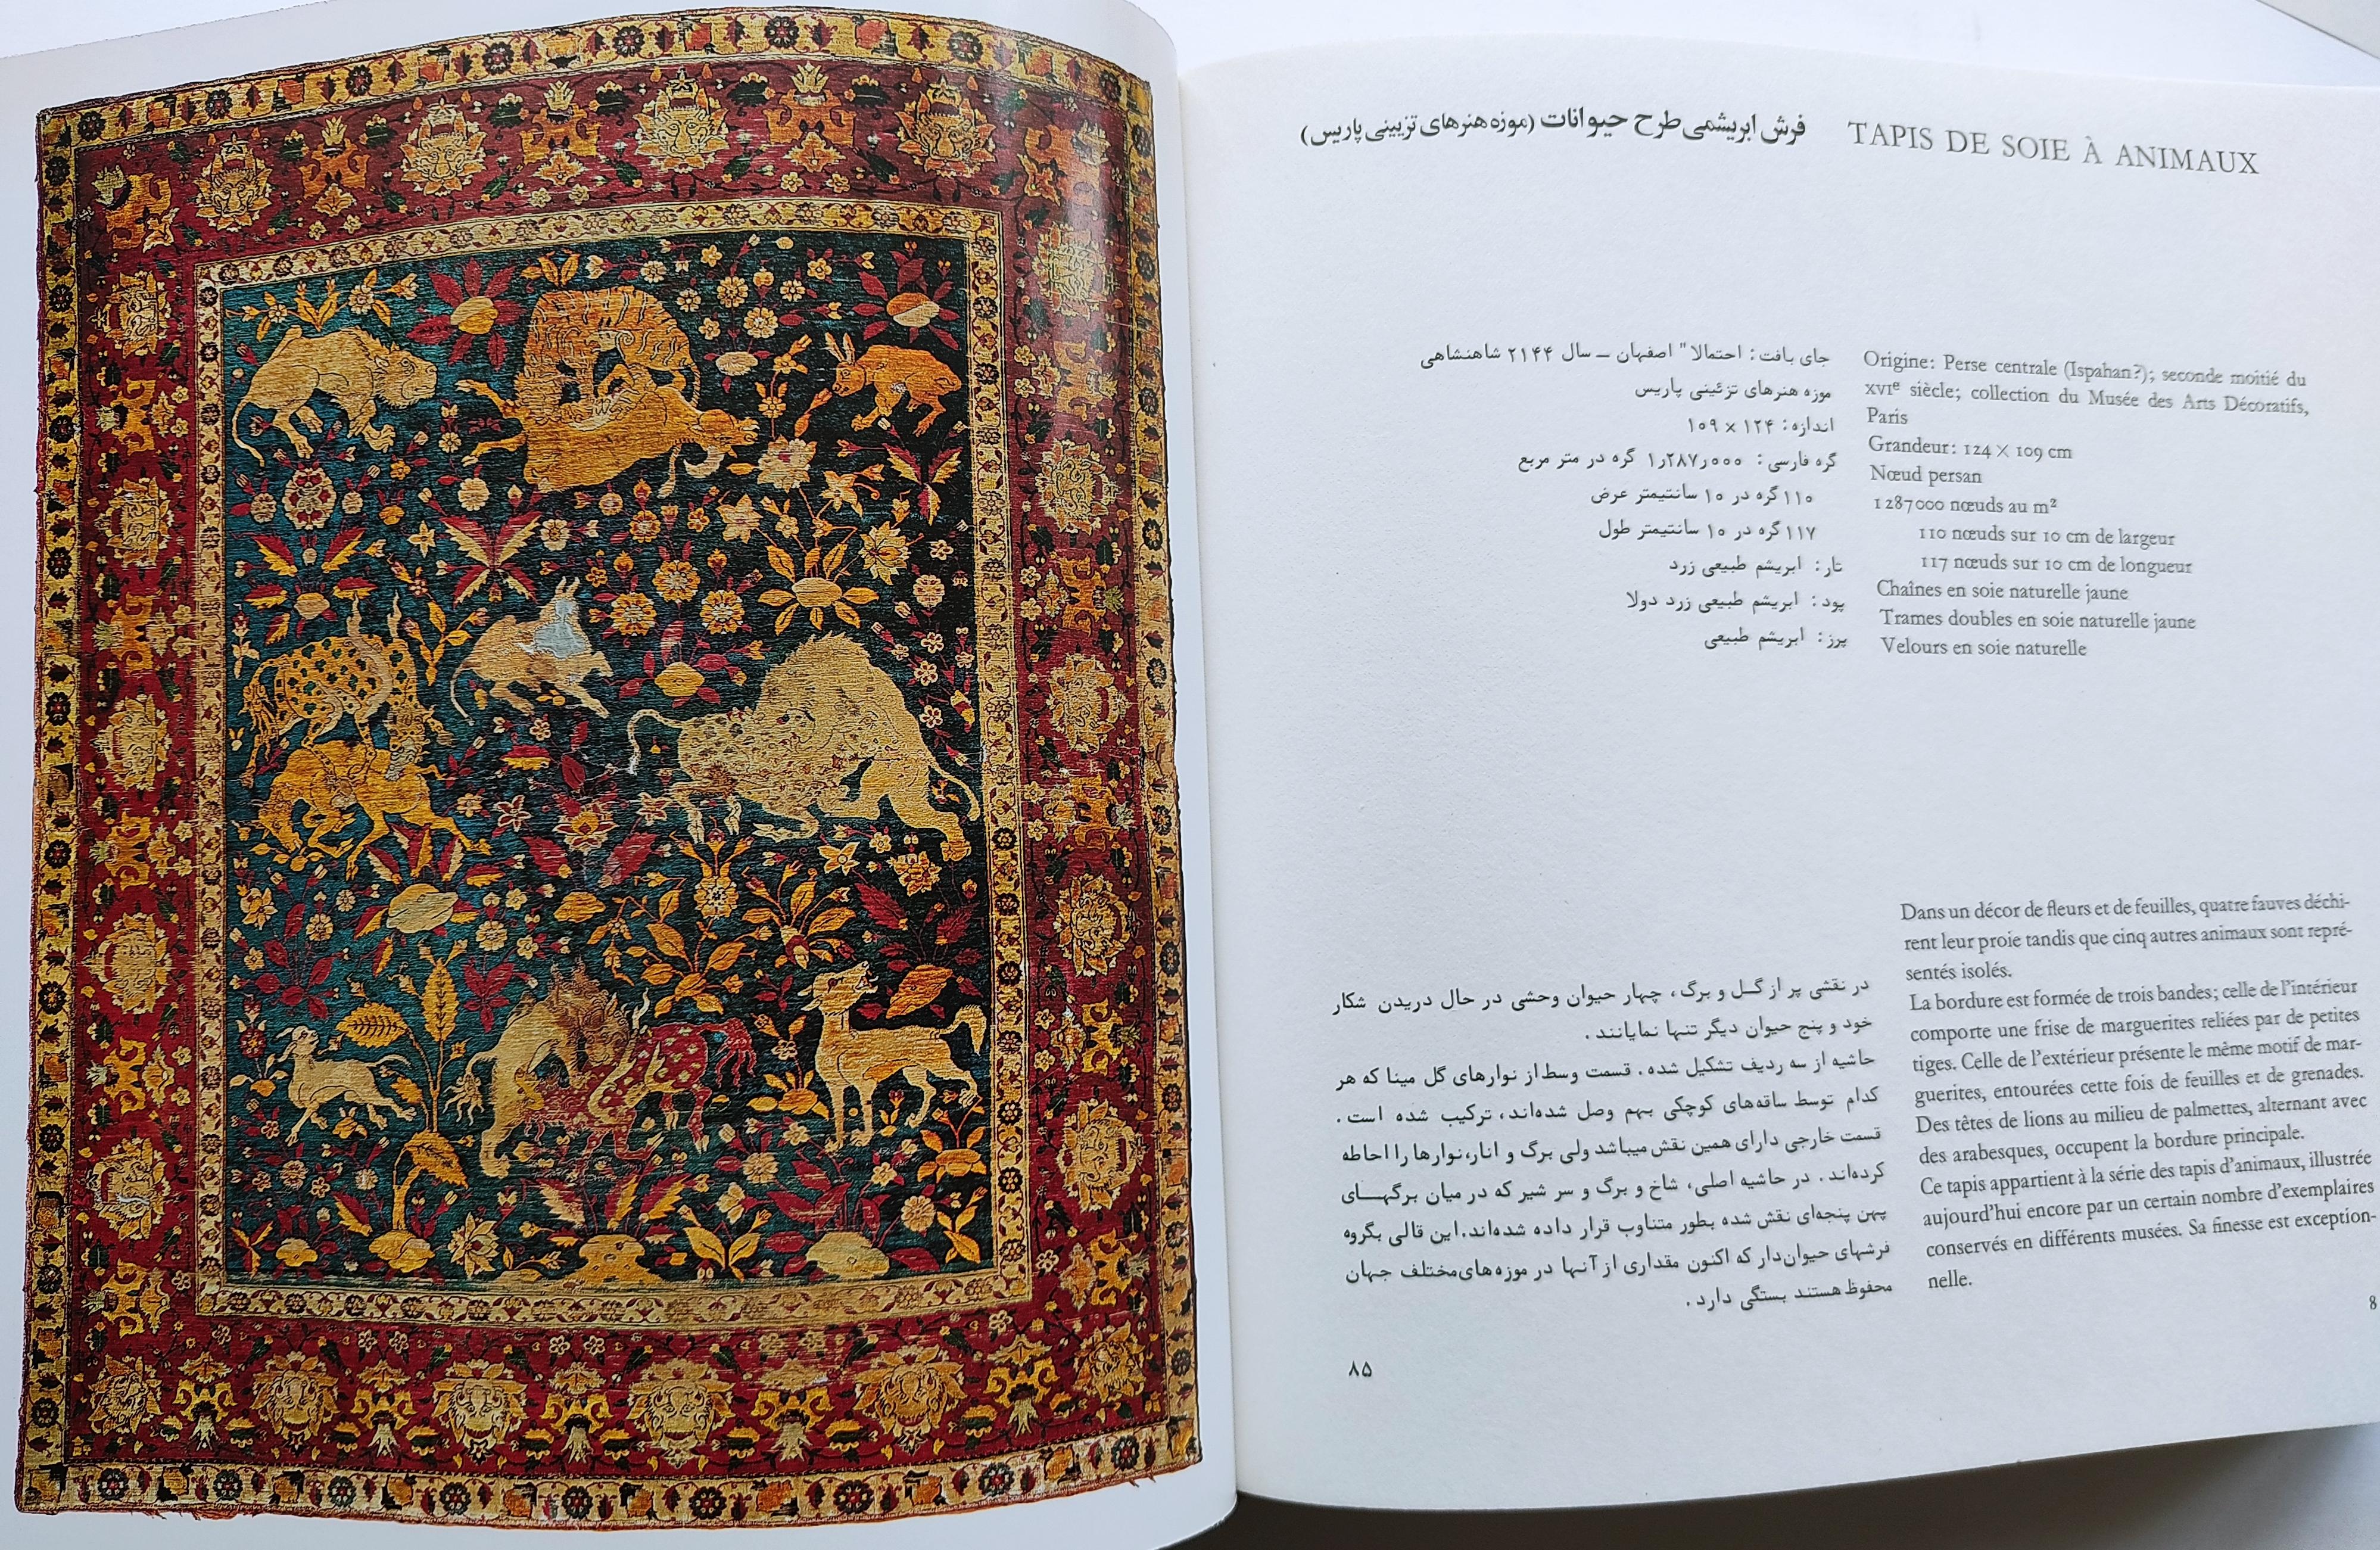 فرش ابریشمی طرح حیوانات (موزه هنرهای تزیینی پاریس)
TAPIS DE SOIE À ANIMAUX
جای بافت: احتمالا" اصفهان ــ سال ۲۱۴۴ شاهنشاهی
موزه هنرهای تزئینی پاریس
اندازه: ۱۲۴ × ۱۰۹
گره فارسی: ۱٫۲۸۷٫۰۰۰ گره در متر مربع
۱۱۰ گره در ۱۰ سانتیمتر عرض
۱۱۷ گره در ۱۰ سانتیمتر طول
تار: ابریشم طبیعی زرد
پود: ابریشم طبیعی زرد دولا
پرز: ابریشم طبیعی
Origine: Perse centrale (Ispahan?); seconde moitié du
XVIe siècle; collection du Musée des Arts Décoratifs,
Paris
Grandeur: 124 × 109 cm
Nœud persan
1 287 000 nœuds au m²
110 nœuds sur 10 cm de largeur
117 nœuds sur 10 cm de longueur
Chaînes en soie naturelle jaune
Trames doubles en soie naturelle jaune
Velours en soie naturelle
در نقشی پر از گــل و برگ، چهار حیوان وحشی در حال دریدن شکار
خود و پنج حیوان دیگر تنها نمایانند.
حاشیه از سه ردیف تشکیل شده. قسمت وسط از نوارهای گل مینا که هر
کدام توسط ساقه‌های کوچکی بهم وصل شده‌اند، ترکیب شده است.
قسمت خارجی دارای همین نقش میباشد ولی برگ و انار،نوارها را احاطه
کرده‌اند. در حاشیه اصلی، شاخ و برگ و سر شیر که در میان برگهــای
پهن پنجه‌ای نقش شده بطور متناوب قرار داده شده‌اند.این قالی بگروه
فرشهای حیوان‌دار که اکنون مقداری از آنها در موزه‌های مختلف جهان
محفوظ هستند بستگی دارد.
۸۵
Dans un décor de fleurs et de feuilles, quatre fauves déchi-
rent leur proie tandis que cinq autres animaux sont repré-
sentés isolés.
La bordure est formée de trois bandes; celle de l'intérieur
comporte une frise de marguerites reliées par de petites
tiges. Celle de l'extérieur présente le même motif de mar-
guerites, entourées cette fois de feuilles et de grenades.
Des têtes de lions au milieu de palmettes, alternant avec
des arabesques, occupent la bordure principale.
Ce tapis appartient à la série des tapis d'animaux, illustrée
aujourd'hui encore par un certain nombre d'exemplaires
conservés en différents musées. Sa finesse est exception-
nelle.
8